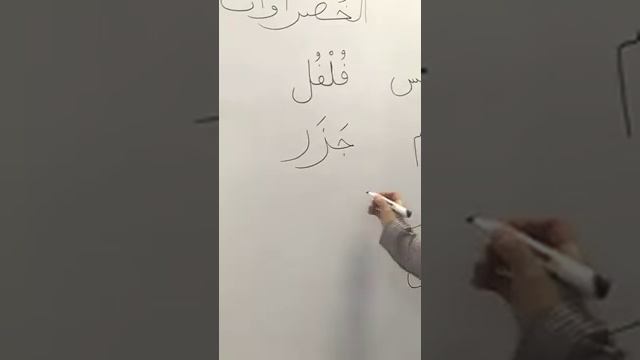 الخضراوات
فُلْفُل
جَزَر